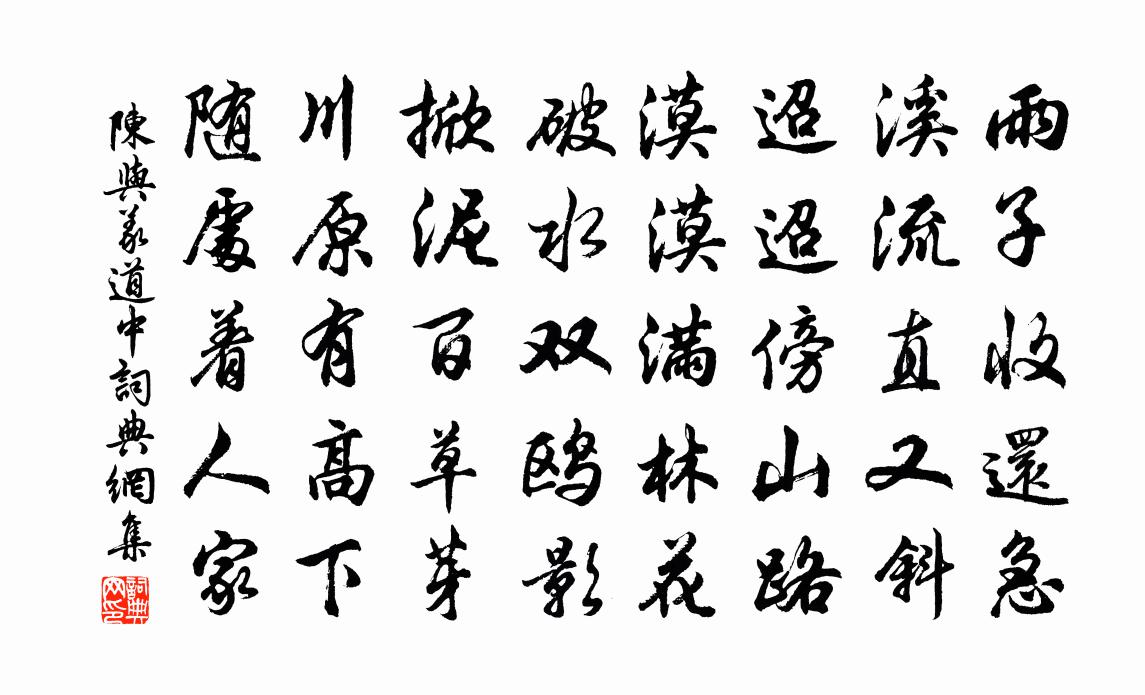 雨子收還急
溪流直又斜
迢迢傍山路
漠漠滿林花
破水双鸥影
掀泥百草芽
川原有高下
随處着人家
陳與義道中詞典網集
詞典网印